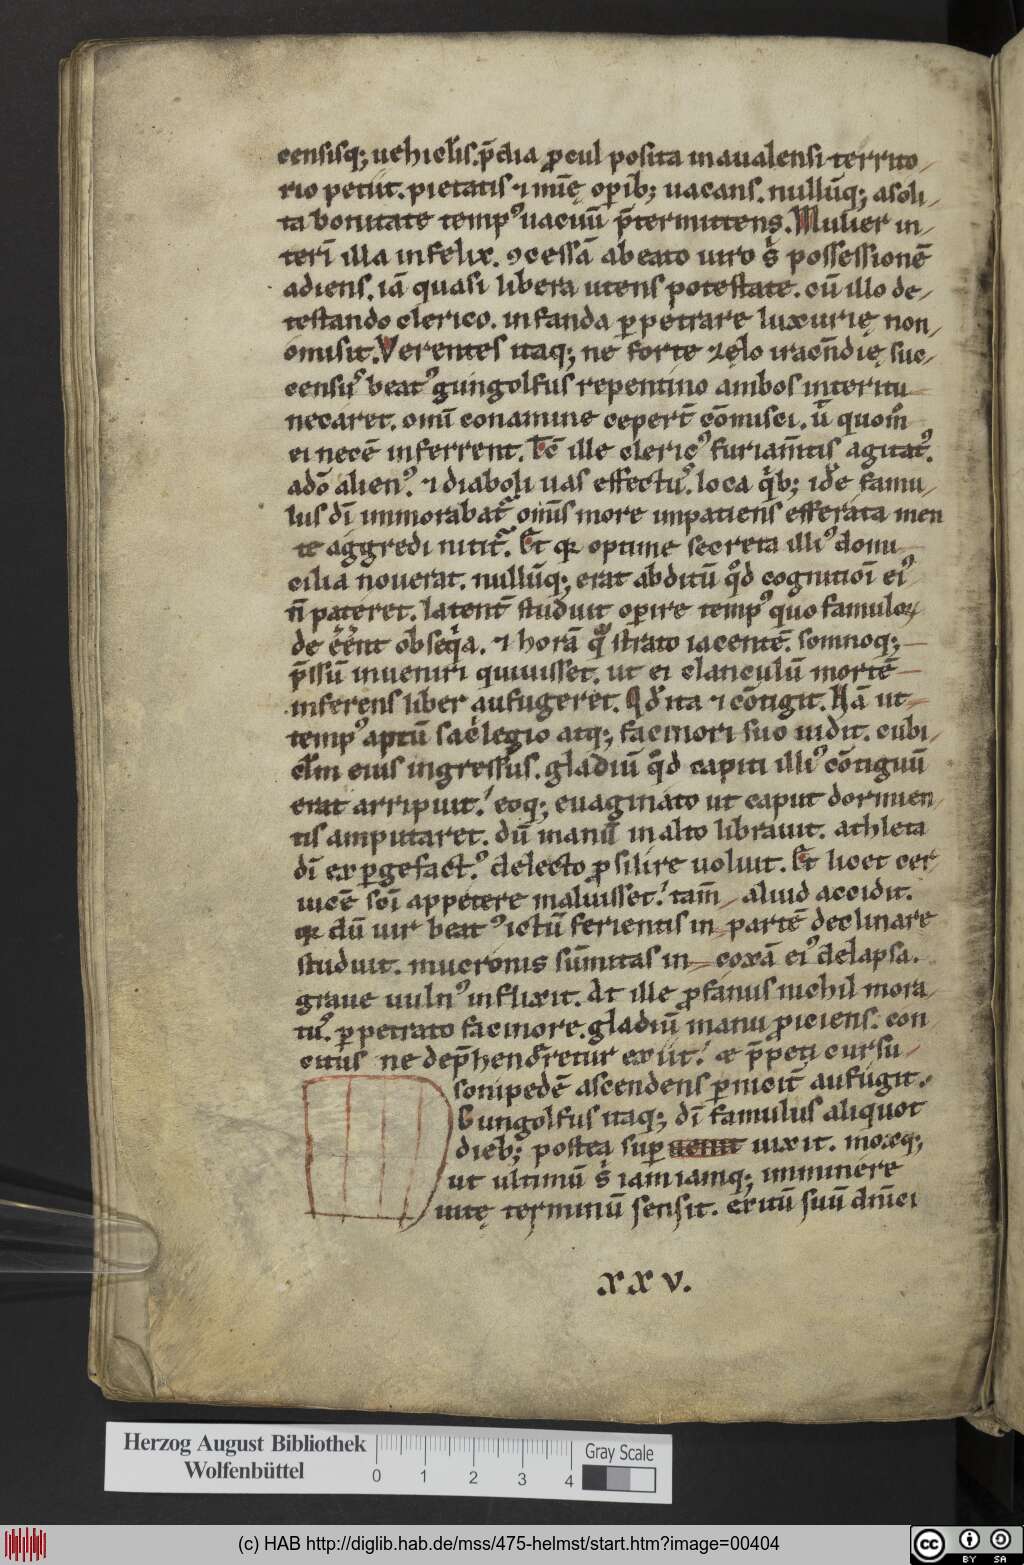 censisq; uehiclis. p̄dia ꝓcul posita in aualensi territo
rio petiit. pietatis ⁊ mīe oꝑib; uacans. nullūq; a soli
ta bonitate tempꝰ uacuū p̄termittens. Mulier in
terī illa infelix. ꝯcessā a beato uiro s; possessionē
adiens. iā quasi libera utens potestate. cū illo de
testando clerico. infanda ꝑpetrare luxurię non
omisit. Verentes itaq; ne forte zęlo iracn̄dię suc
censꝰ beatꝰ gungolfus repentino ambos interitu
necaret. omī conamine ceperт̄ cōmisci. ū quom̊
ei necē inferrent. Tc̄ ille clericꝰ furiam̄tis agitatꝰ.
a dō alienꝰ. ⁊ diaboli uas effectꝰ. loca q̇b; ide famu
lus dī immorabat᷑ om̄s more inpatiens efferata men
te aggredi nitit᷑. Et qꝛ optime secreta illiꝰ domi
cilia nouerat. nullūq; erat abditū qd̄ cognitioī eiꝰ
n̄ pateret. latent̄ studuit oꝑire tempꝰ quo famuloꝝ
deēēnt obseq̇a. ⁊ horā q̊ strato iacentē. somnoq;
p̄ssū inueniri quiuisset. ut ei clanculū mortē
inferens liber aufugeret. Qd̄ ita ⁊ cōtigit. Nā ut
tempꝰ aptū sac̓legio atq; facinori suo uidit. cubi
cl̄m eius ingressus. gladiū qd̄ capiti illiꝰ cōtiguū
erat arripuit. eoq; euaginato ut caput dormien
tis amputaret. dū manū in alto librauit. athleta
dī exꝑgefactꝰ. de lecto ꝓsilire uoluit. Et licet cer
uicē scī appetere maluisset. tam̄ aliud accidit.
qꝛ dū uir beatꝰ ictū ferientis in partē declinare
studuit. mucronis sūmitas in coxā eiꝰ delapsa.
graue uulnꝰ inflixit. At ille ꝓfanus nichil mora
tꝰ. ꝑpetrato facinore. gladiū manu ꝓiciens. con
citus ne dep̄hend̄retur exiit. ac p̄peti cursu
sonipedē ascendens ꝑnicit̄ aufugit.
Gungolfus itaq; dī famulus aliquot
dieb; postea suꝑuenit uixit. moxq;
ut ultimū s; iam iamq; imminere
uitę terminū sensit. exitū suū dn̄ici
xxv.
Herzog August Bibliothek
Wolfenbüttel
0 1 2 3 4
Gray Scale
(c) HAB http://diglib.hab.de/mss/475-helmst/start.htm?image=00404
cc BY SA